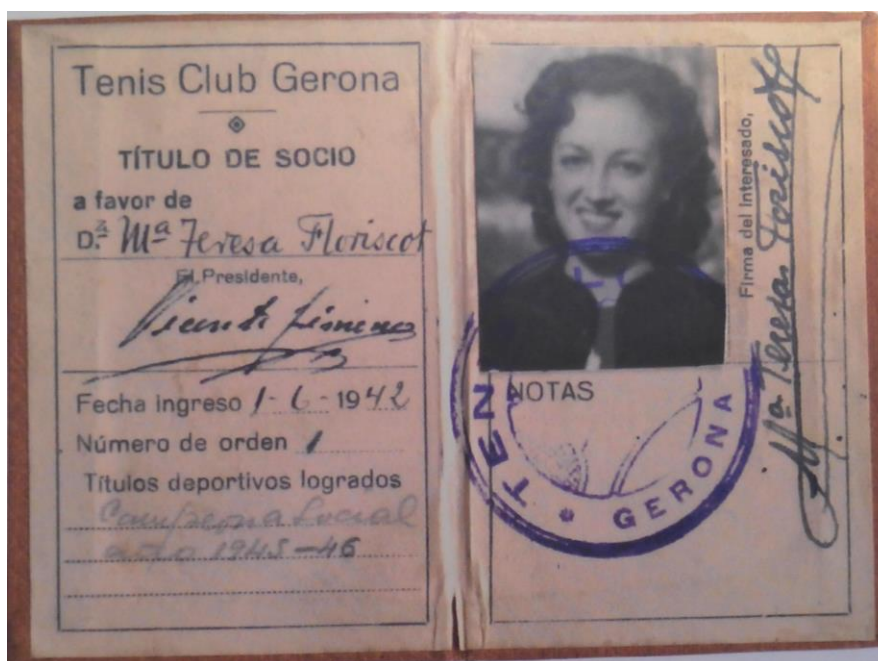 Tenis Club Gerona
TÍTULO DE SOCIO
a favor de
D.ª Mª Teresa Floriscot
El Presidente,
Vicente Jimenez
Fecha ingreso 1-6-1942
Número de orden 1
Títulos deportivos logrados
Campeona Social
año 1945-46
Firma del interesado,
Mª Teresa Floriscot
NOTAS
TENIS
* GERONA